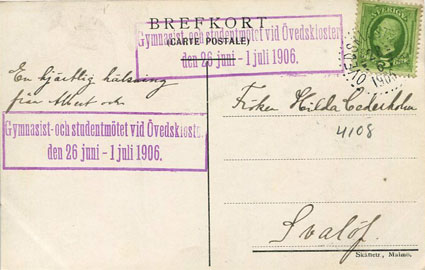 BREFKORT
(CARTE POSTALE)
Gymnasist-och studentmötet vid Övedskloster
den 26 juni - 1 juli 1906.
SVERIGE
En hjärtlig hälsning
från Albert och
Gymnasist-och studentmötet vid Övedskloster
den 26 juni - 1 juli 1906.
Fröken Hilda Cederholm
4108
Svalöf.
Skånetr., Malmö.